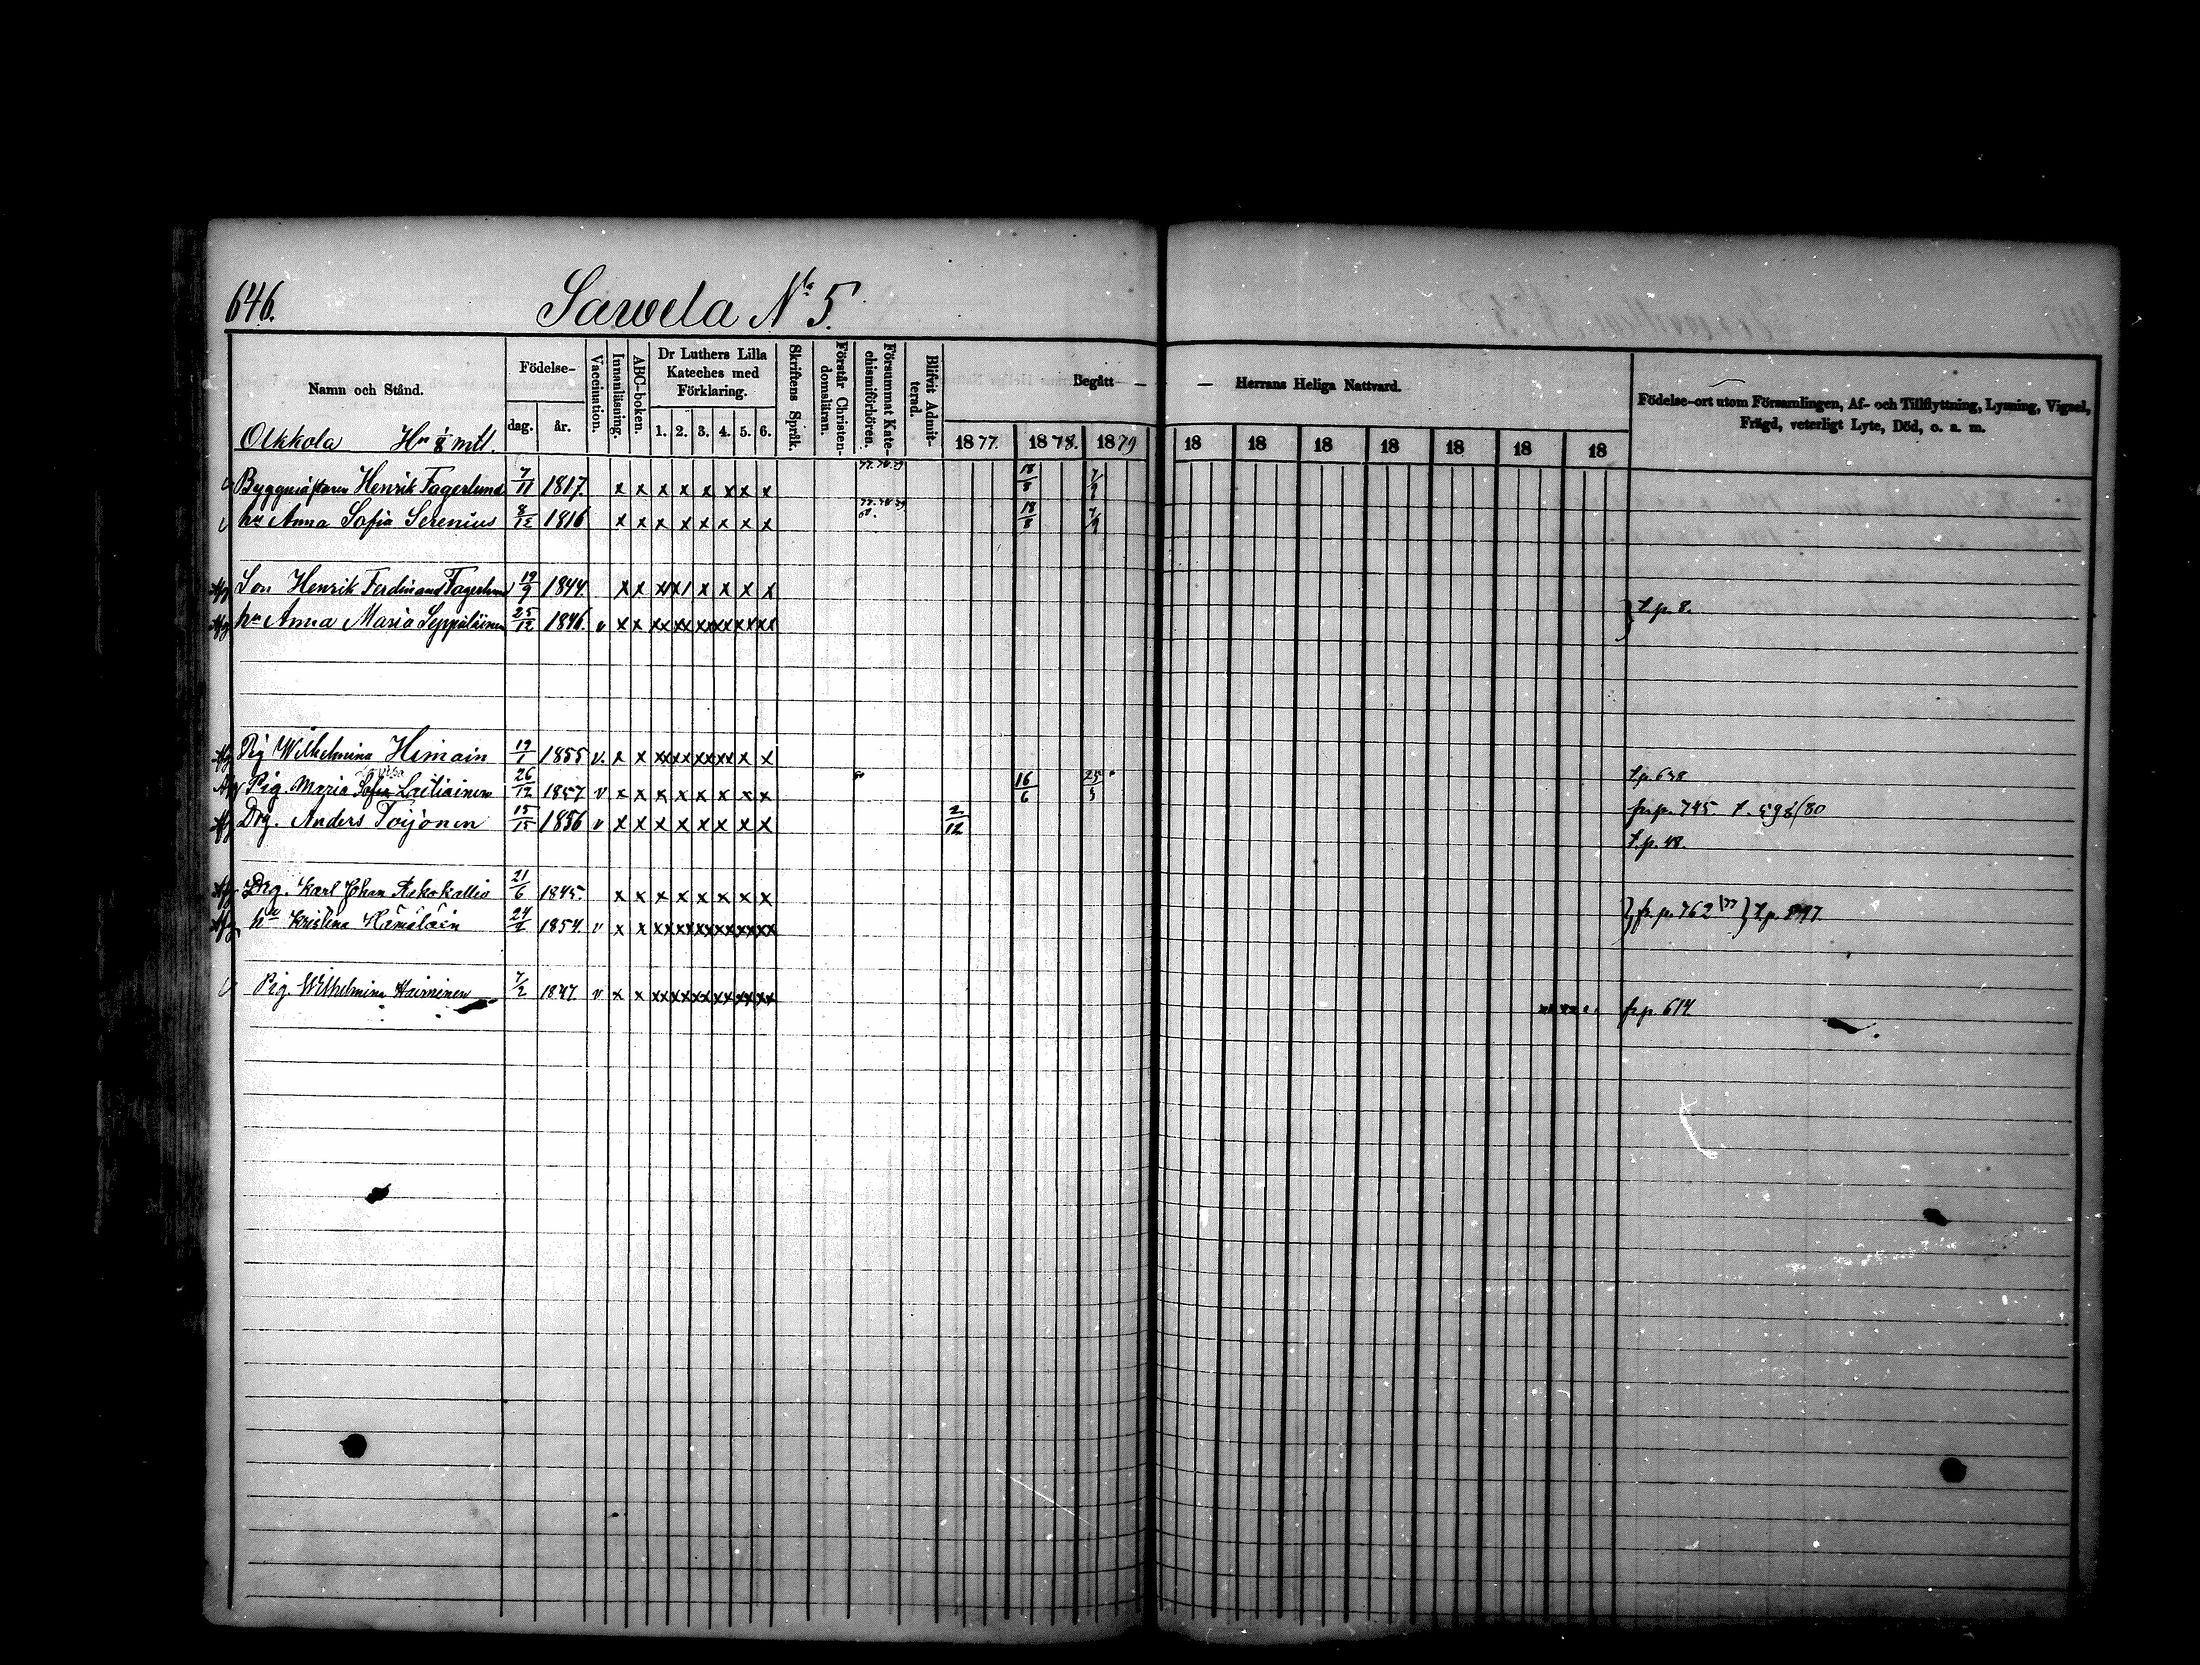 646.
Sawela No 5.
Namn och Stånd.
Födelse-
dag.
år.
Vaccination.
Innanläsning.
ABC-boken.
Dr Luthers Lilla
Kateches med
Förklaring.
1. 2. 3. 4. 5. 6.
Skriftens Språk.
Förstår Christen-
domsläran.
Försummat Kate-
chismiförhören.
Blifvit Admit-
terad.
Begått — — Herrans Heliga Nattvard.
1877. 1878. 1879 18 18 18 18 18 18 18
Födelse-ort utom Församlingen, Af- och Tillflyttning, Lysning, Vigsel,
Frägd, veterligt Lyte, Död, o. s. m.
Olkkola Hn 1/8 mtl.
Byggmästaren Henrik Fagerlund 7/11 1817. x x x x x xx x 77.78.79 18/8 7/9
hu Anna Sofia Serenius 8/12 1816 x x x x x x x x 18/8 7/9
Son Henrik Ferdinand Fagerlund 19/9 1844.
hu Anna Maria Seppäläinen 25/12 1846. v t.p. 8.
Pig Wilhelmina Himain 19/1 1855 v. t.p. 638
Pig. Maria Sofia Laitiainen 26/12 1857 v x x x x x x x x 16/6 25/5 fr.p. 745.
Drg. Anders Toijonen 1856 v x x x x x x x x 2/12 t.p. 48.
Drg. Karl Johan 21/6 1845. x x x x x x x x
hu Kristina Hämäläin 1854. v fr.p. 762 t.p.
Pig Wilhelmina 7/2 1847. v fr.p. 614